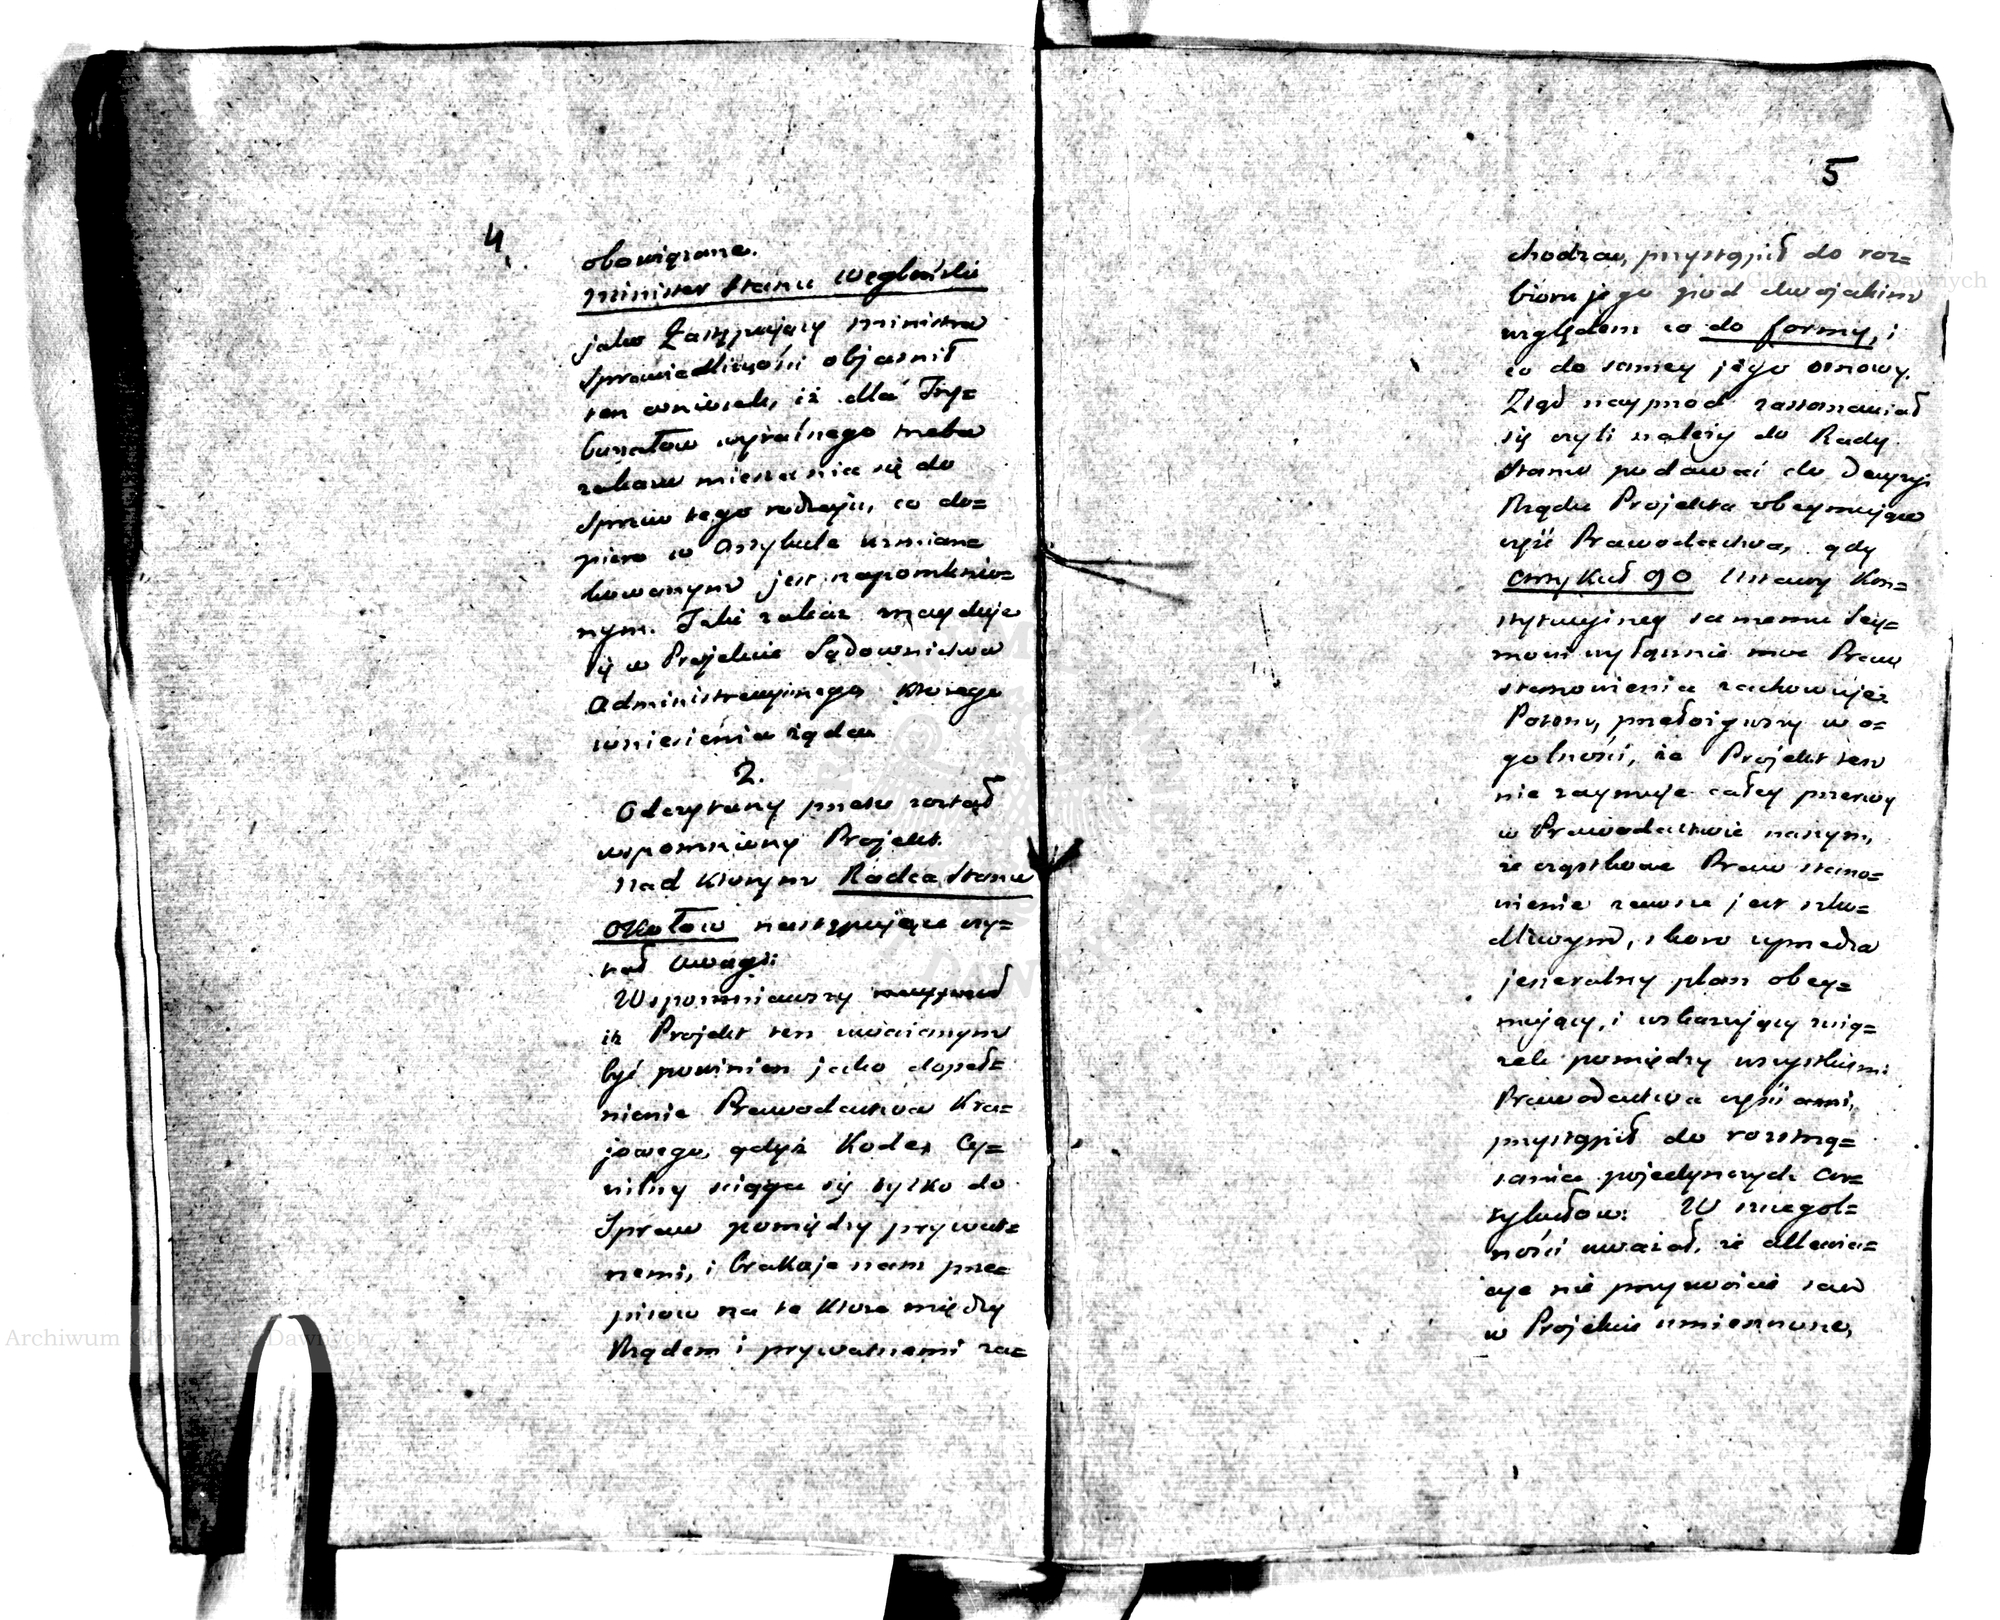 4.
obowiązane.
Minister Stanu Węgleński
jako Zastępujący Ministra
Sprawiedliwości objasnił
ten wniosek, iż dla Try=
bunałow wyraźnego trzeba
zakazu mieszania się do
Spraw tego rodzaju, co do=
piero w Artykule
jest napomknio=
nym. Taki zakaz znayduje
się w Projekcie Sądownictwa
Administracyjnego którego
wniesienia żąda.
2.
Odczytany przeto został
wspomniony Projekt.
nad ktorym Radca Stanu
Okołow następujące czy=
nił Uwagi:
Wspomniawszy
iż Projekt ten uważanym
być powinien jako dopeł=
nienie Prawodawstwa Kra=
jowego, gdyż Kodex Cy=
wilny sciąga się tylko do
Spraw pomiędzy prywat=
nemi, i brakuje nam prze=
pisow na te ktore między
Rządem i prywatnemi za=
5
chodzą, przystąpił do roz=
bioru jego pod dwojakim
względem co do formy, i
co do samey jego osnowy.
Ztąd nayprzod zastanawiał
się czyli należy do Rady
Stanu podawać do Decyzyi
Rządu Projekta obeymujące
część Prawodawstwa, gdy
Artykuł 90 Ustawy Kon=
stytucyjney samemu Sey=
mowi wyłącznie moc Praw
stanowienia zachowuje.
Potem, przełożywszy w o=
golności, że Projekt ten
nie zaymuje całey przerwy
w Prawodawstwie naszym,
że cząstkowe Praw stano=
wienie zawsze jest szko=
dliwym, skoro uprzedza
jeneralny plan obey=
mujący, i wskazujący zwią=
zek pomiędzy wszystkiemi
Prawodawstwa częściami,
przystąpił do roztrzą=
sania pojedynczych Ar=
tykułow. W szczegol=
ności uważał, że allewia=
cye nie przyzwoicie są
w Projekcie umieszczone,